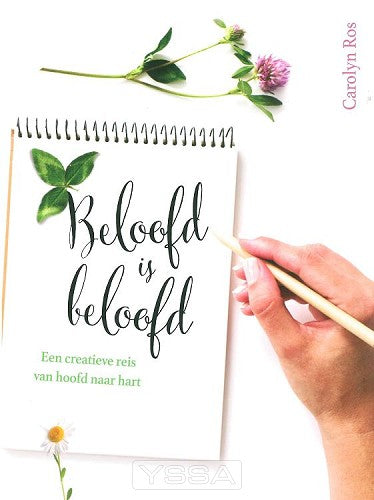 Carolyn Ros
Beloofd
is
beloofd
Een creatieve reis
van hoofd naar hart
YSSA